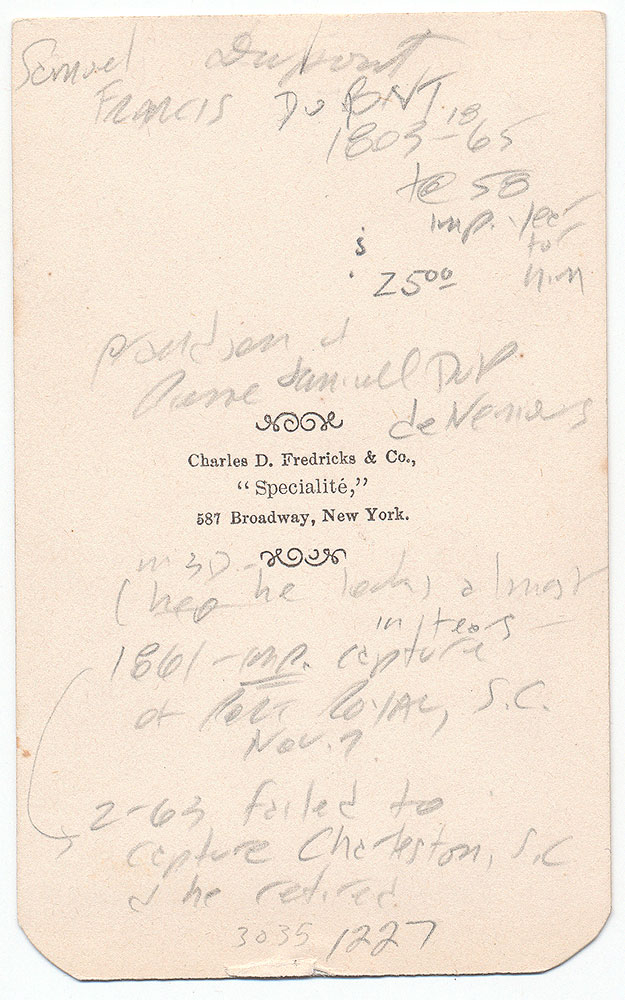 Samuel Dupont
FRANCIS DuPONT
1803-1865
to 58
imp. year
for
him
$
2500
grandson of
Pierre Samuell DuP
de Nemours
Charles D. Fredricks & Co.,
“Specialité,”
587 Broadway, New York.
in 3D-
(here he looks almost
in tears -
1861 - imp. capture
of Port Royal, S.C.
Nov. 7
2-63 failed to
capture Charleston, S.C
& he retired.
3035 1227